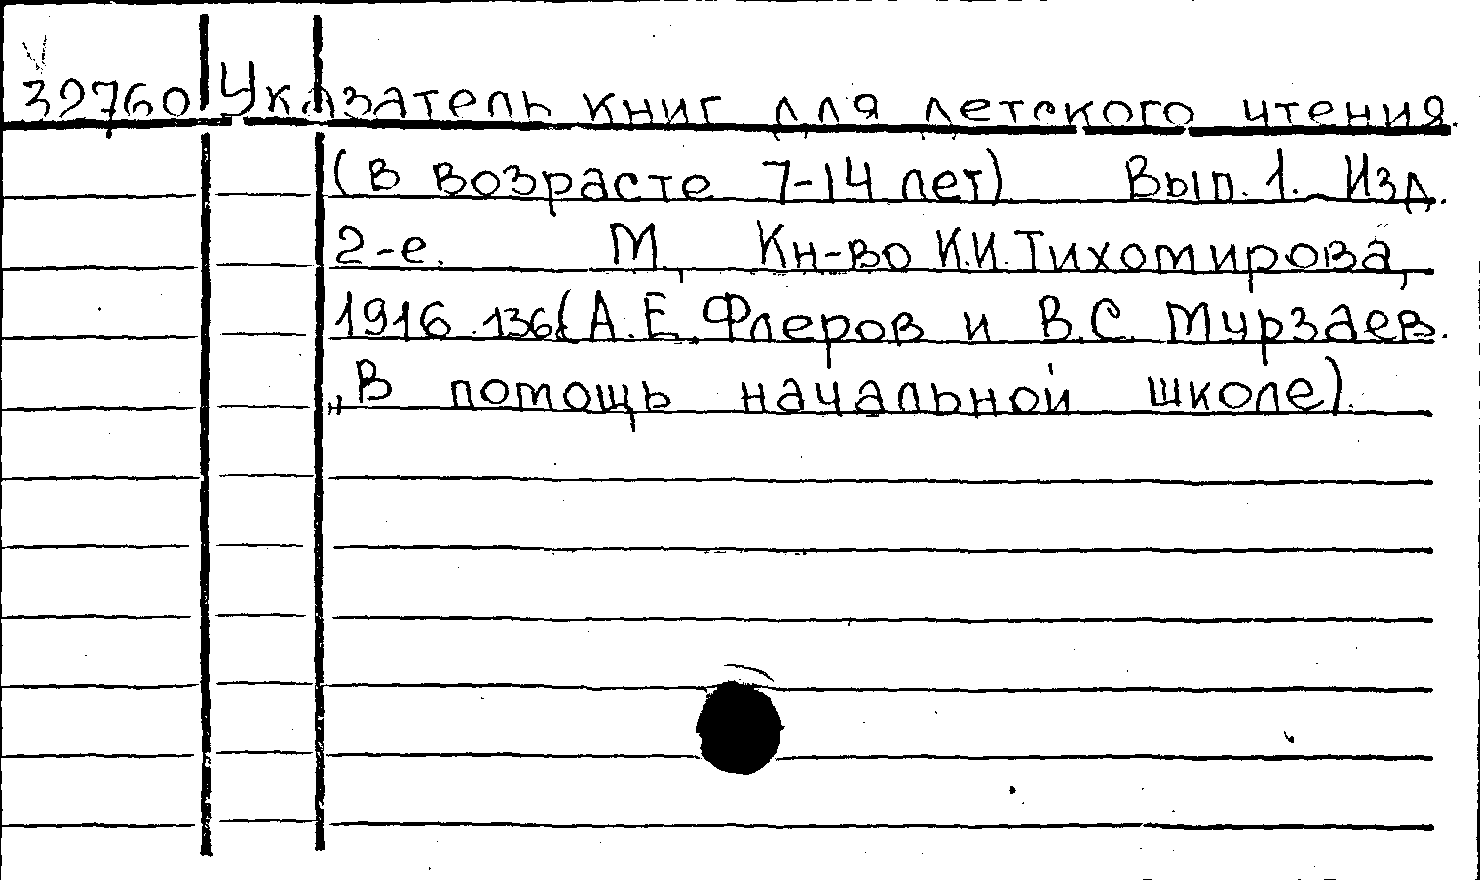 32760 Указатель книг для детского чтения.
(в возрасте 7-14 лет) Вып. 1. Изд.
2-е. М, Кн-во К.И.Тихомирова,
1916. 136( А.Е. Флеров и В.С. Мурзаев.
„В помощь начальной школе).